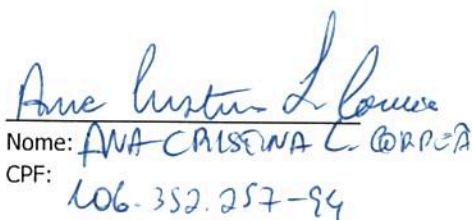 Ana Cristina L. Correa
Nome: ANA CRISTINA L. CORREA
CPF:
106.352.257-94